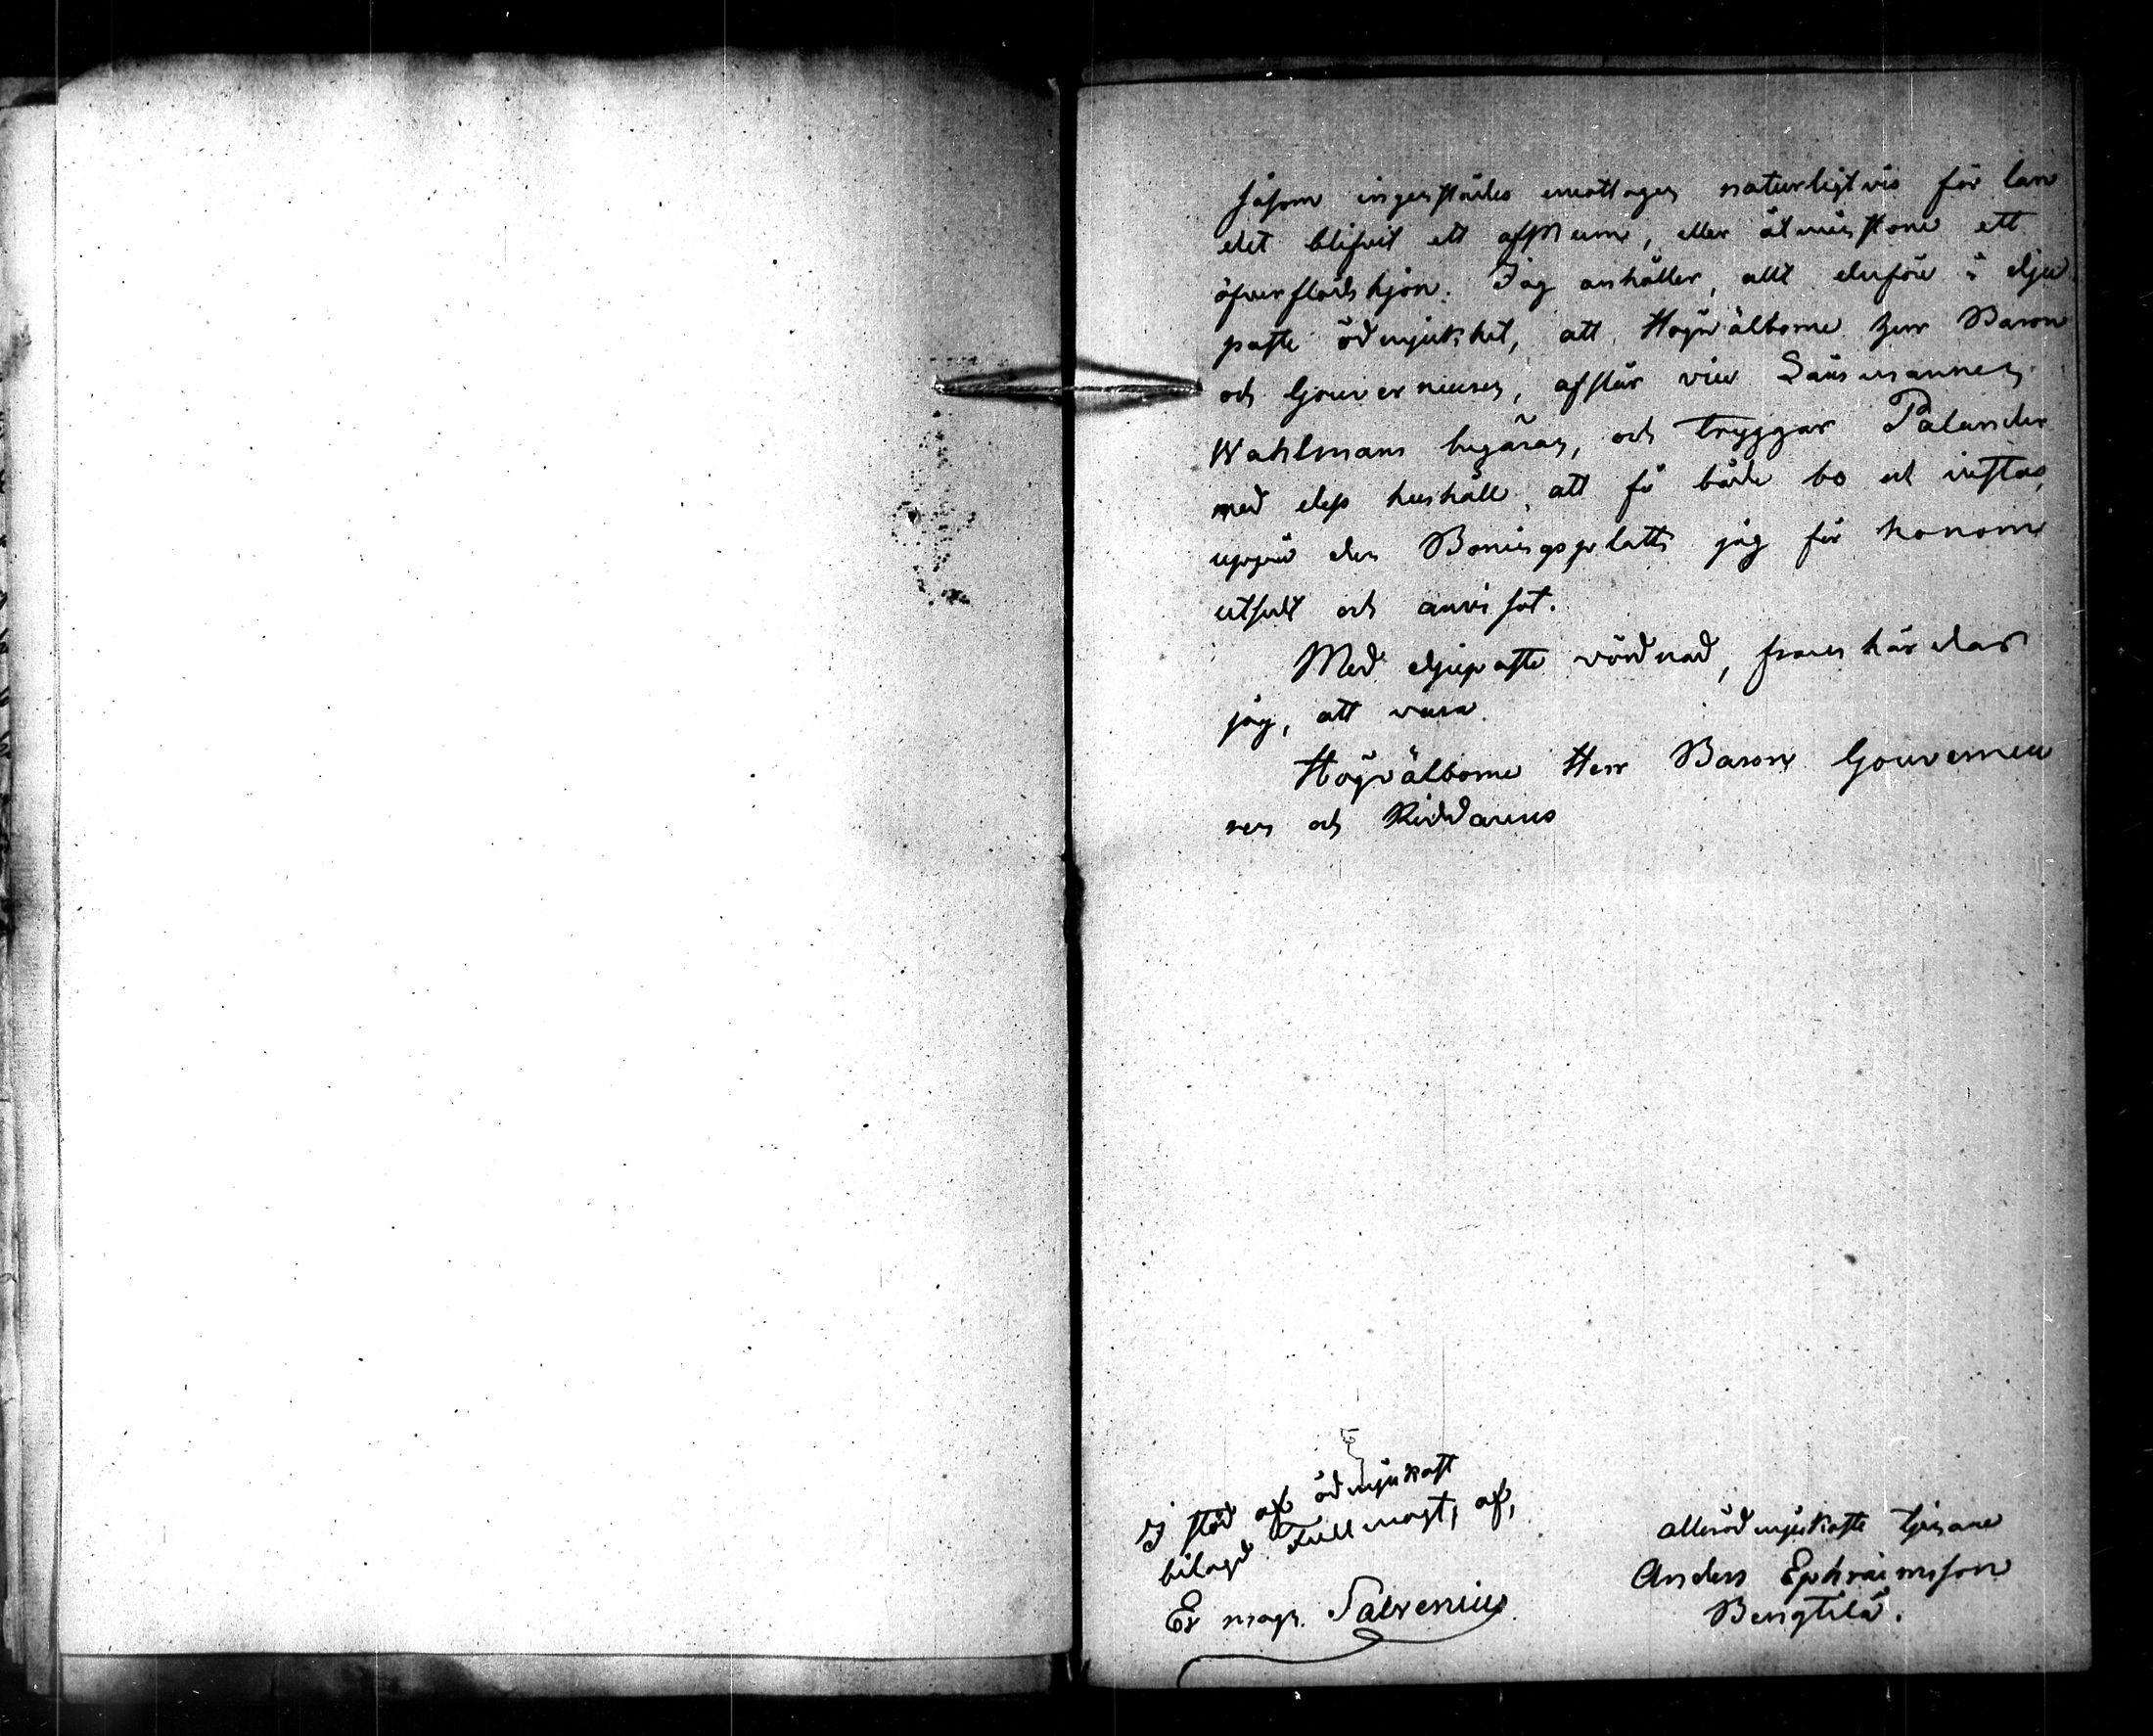 såsom ingenstädes emottagen naturligtvis för lan
det blifvit ett afskum, eller åtminstone ett
öfverflöds hjon. Jag anhåller, allt derföre i dju
paste ödmjukhet, att Högvälborne Herr Baron
och Gouverneuren, afslår Länsmannen
Wahlmans begäran, och tryggar Palander
med dess hushåll, att få både bo och vistas,
uppå den Boningsplatts jag för honom
utsedt och anvisat.
Med djupaste vördnad, framhärdar
jag, att vara
Högvälborne Herr Baron Gouverneu
ren och Riddarens
I stöd af ödmjukast
bilagd Fullmagt, af,
Er magn. Salvenius
allerödmjukaste tjenare
Anders Ephraimsson
Bengtilä.